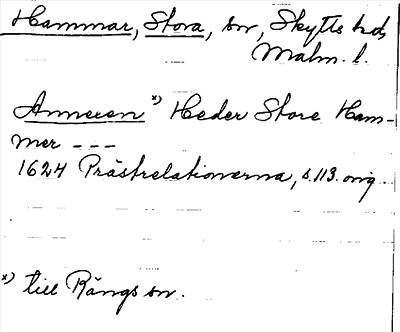 Hammar, Stora, sn, Skytts hd,
Malm. l.
Anneren *) Heder Store Ham-
mer - - -
1624 Prästrelationerna, s. 113. orig
*) till Rängs sn.